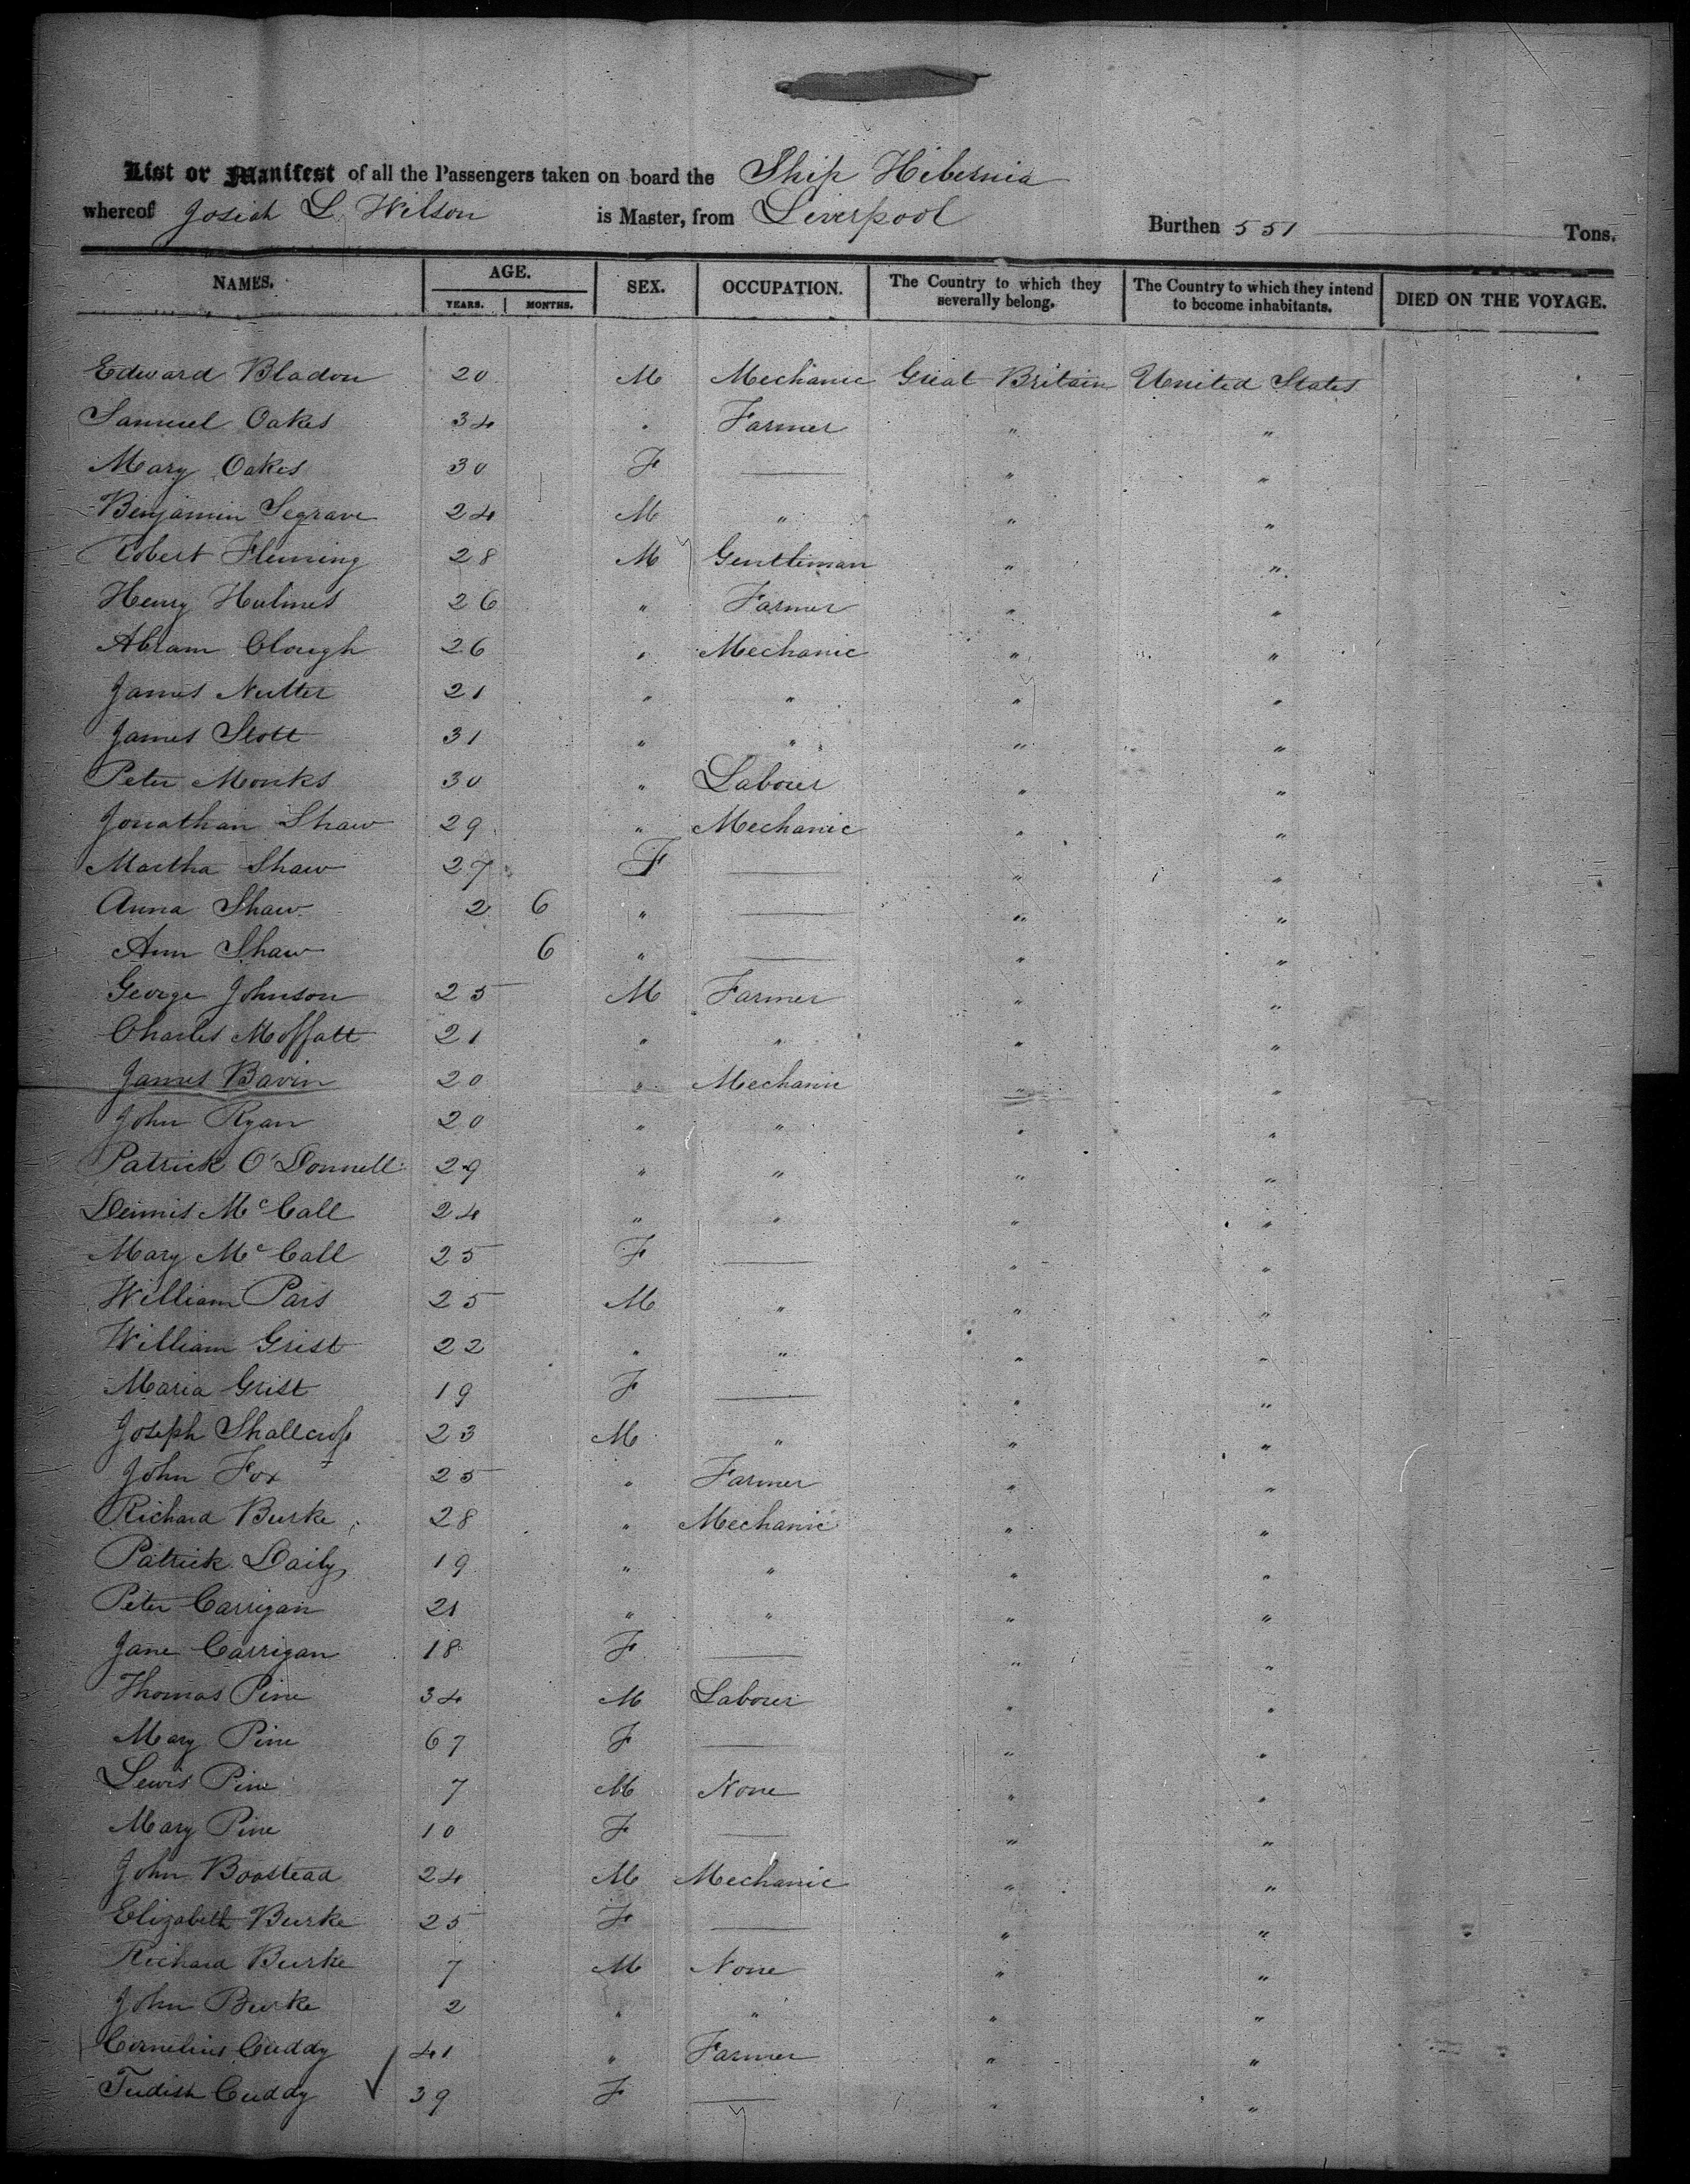 List or Manifest of all the Passengers taken on board the Ship Hibernia
whereof Josiah L. Wilson is Master, from Liverpool Burthen 551 Tons.
NAMES. AGE. SEX. OCCUPATION. The Country to which they severally belong. The Country to which they intend to become inhabitants. DIED ON THE VOYAGE.
YEARS. MONTHS.
Edward Bladon 20 M Mechanic Great Britain United States
Samuel Oakes 34 " Farmer " "
Mary Oakes 30 F — " "
Benjamin Segrave 24 M " " "
Robert Fleming 28 M Gentleman " "
Henry Hulmes 26 " Farmer " "
Abram Clough 26 " Mechanic " "
James Nutter 21 " " " "
James Stott 31 " " " "
Peter Monks 30 " Labour " "
Jonathan Shaw 29 " Mechanic " "
Martha Shaw 27 F — " "
Anna Shaw 2 6 " — " "
Ann Shaw 6 " — " "
George Johnson 25 M Farmer " "
Charles Moffatt 21 " " " "
James Bavin 20 " Mechanic " "
John Ryan 20 " " " "
Patrick O'Donnell 29 " " " "
Dennis McCall 24 " " " "
Mary McCall 25 F — " "
William Pars 25 M " " "
William Grist 22 " " " "
Maria Grist 19 F — " "
Joseph Shallcross 23 M " " "
John Fox 25 " Farmer " "
Richard Burke 28 " Mechanic " "
Patrick Daily 19 " " " "
Peter Carrigan 21 " " " "
Jane Carrigan 18 F — " "
Thomas Pine 34 M Labour " "
Mary Pine 67 F — " "
Lewis Pine 7 M None " "
Mary Pine 10 F — " "
John Boostead 24 M Mechanic " "
Elizabeth Burke 25 F — " "
Richard Burke 7 M None " "
John Burke 2 " " " "
Cornelius Cuddy 41 " Farmer " "
Judish Cuddy 39 F — " "